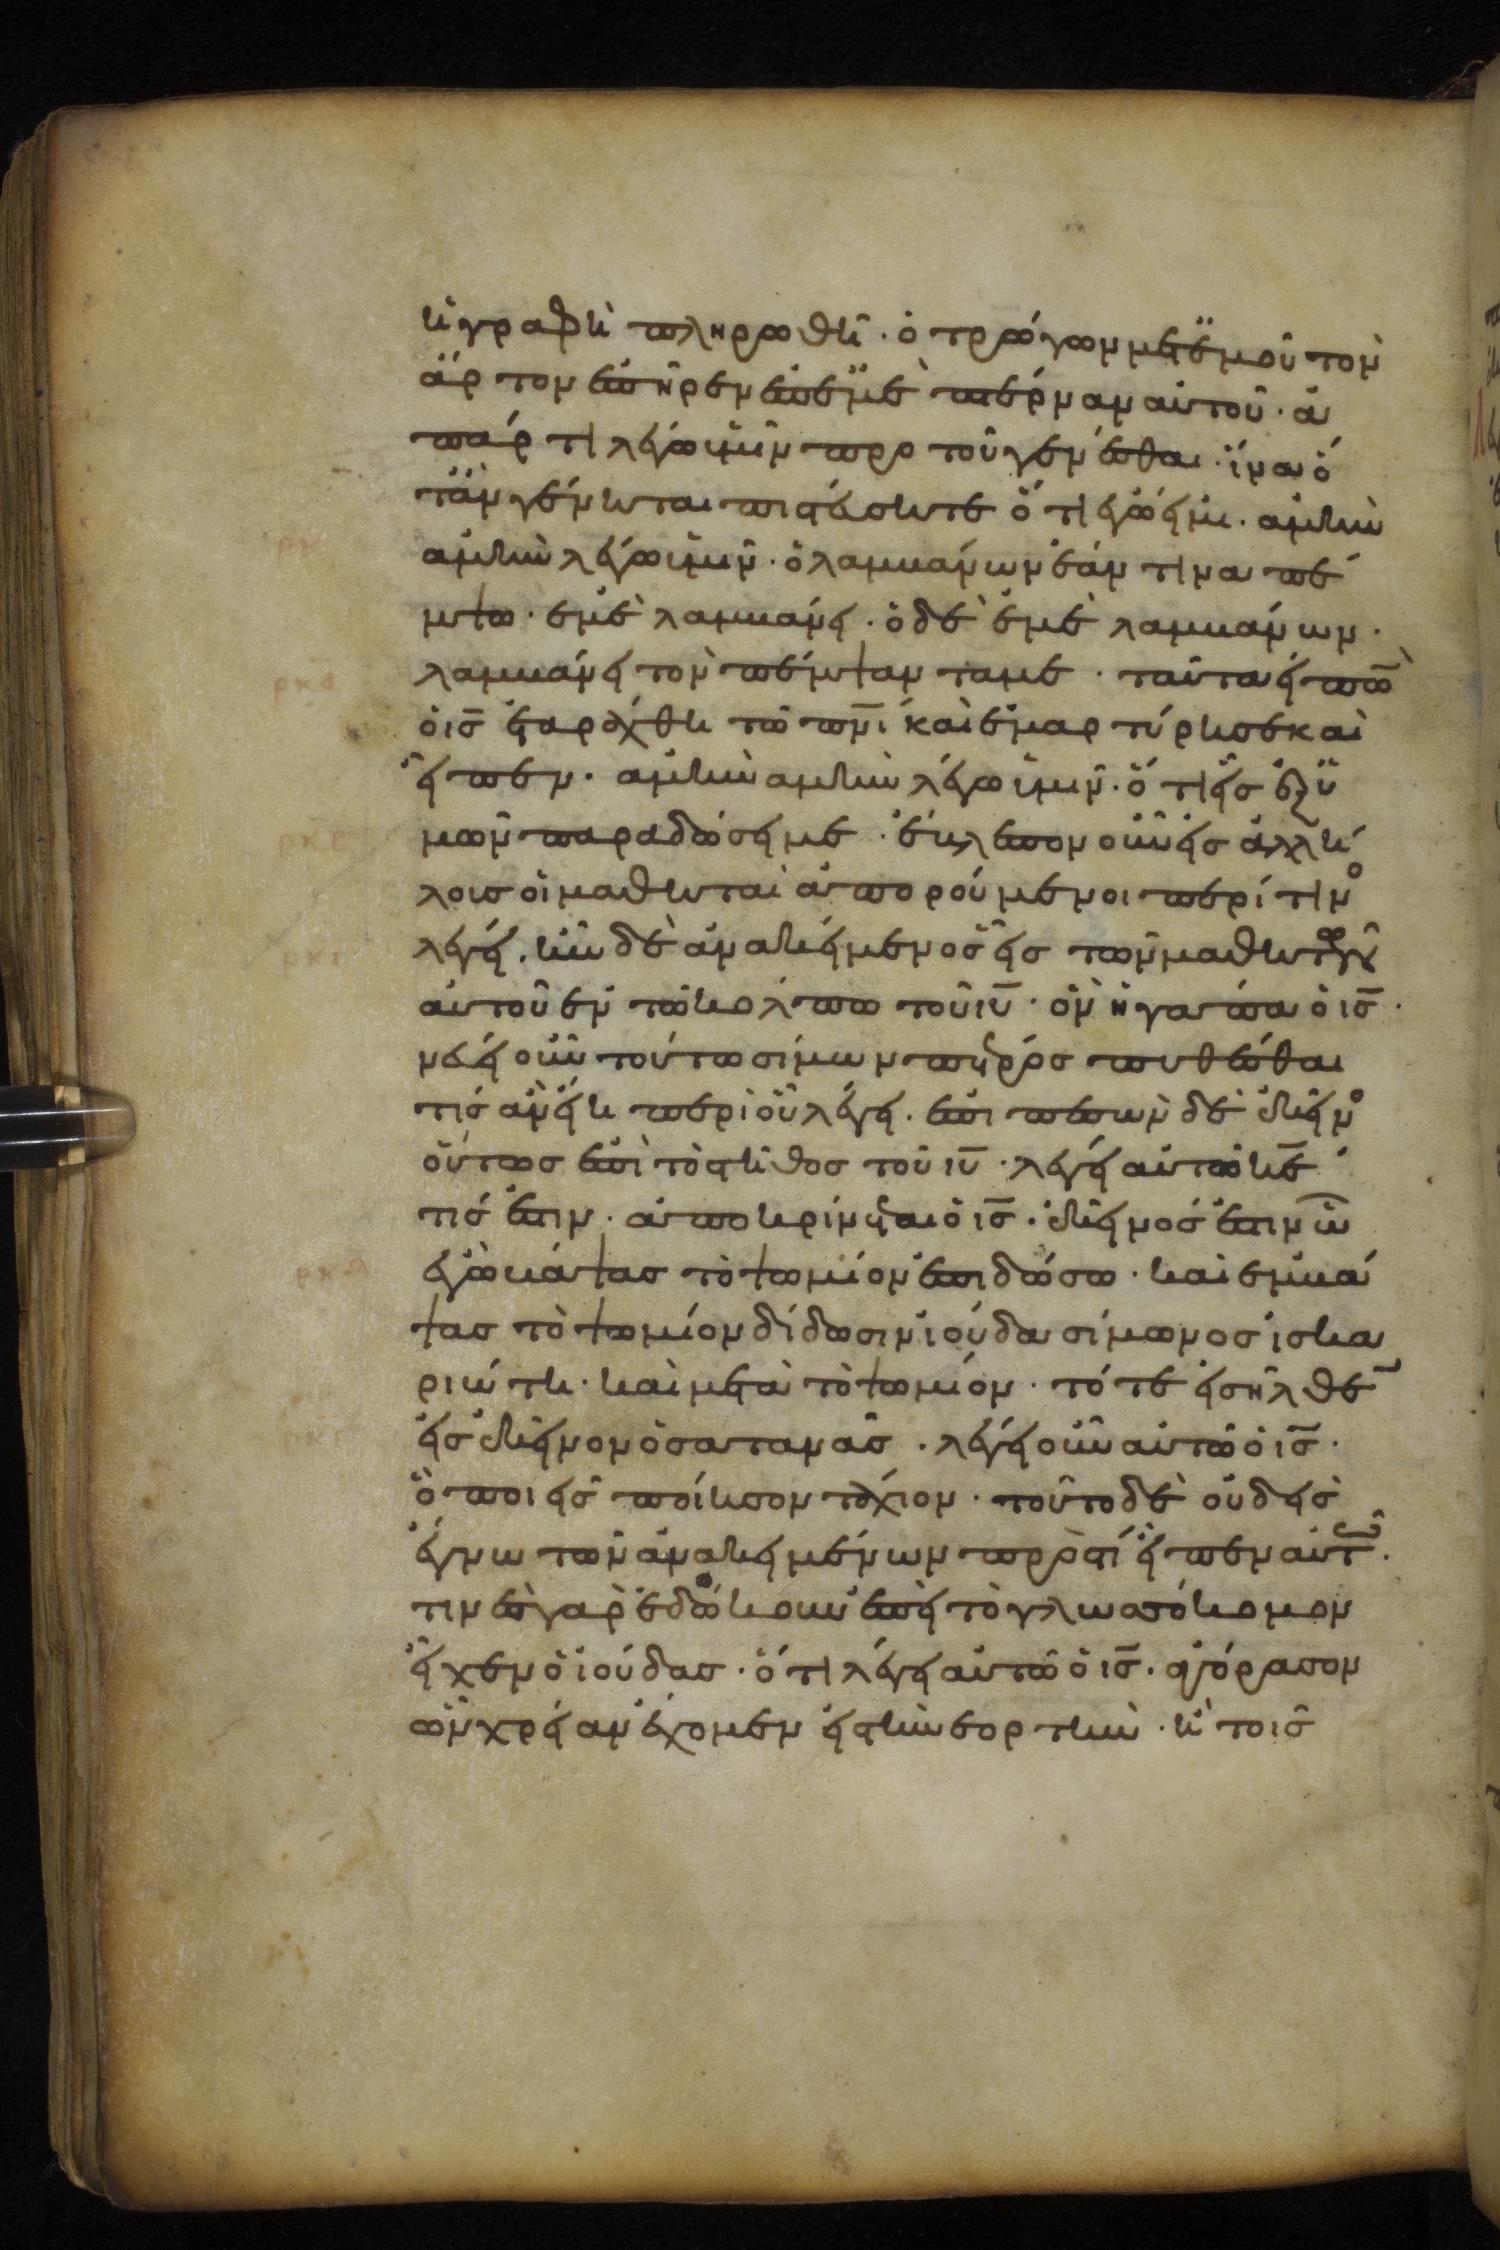 ἡ γραφὴ πληρωθῆ · ὁ τρώγων μετ ἐμοῦ τὸν
ἄρτον ἐπῆρεν ἐπ ἐμὲ πτέρναν αὐτοῦ · ἀ
πάρτι λέγω ὑμῖν προ τοῦ γενέσθαι · ἵνα ὅ
τὰν γένηται πιστεύσητε ὅτι ἐγώ εἰμι · ἀμὴν
ἀμὴν λέγω ὑμῖν · ὁ λαμβάνων ἐάν τινα πέ
μψω · ἐμὲ λαμβάνει · ὁ δὲ ἐμὲ λαμβάνων ·
λαμβάνει τὸν πέμψαντα με · ταῦτα εἰπὼ̄
ὁ ις̄ ἐταράχθη τῶ πν̄ι καὶ ἐμαρτύρησε καὶ
εἶπεν · ἀμὴν ἀμὴν λέγω ὑμῖν · ὅτι εἷς ἐξ ὑ
μῶν παραδώσει με · ἔβλεπον οὖν εἰς ἀλλή
λοις οἱ μαθηταὶ ἀπορούμενοι περὶ τίνο
λέγει · ἦν δὲ ἀνακείμενος εἷς τῶν μαθητῶν
αὐτοῦ ἐν τῶ κόλπω τοῦ ιῡ · ὃν ἠγάπα ὁ ις̄ ·
νεύει οὖν τούτω σίμων πέτρος πυθέσθαι
τίς ἂν εἴη περὶ οὗ λέγει · ἐπιπεσὼν δὲ ἐκεῖνο
οὕτως ἐπὶ τὸ στῆθος τοῦ ιῡ · λέγει αὐτῶ κε̄
τίς ἐστιν · ἀποκρίνεται ὁ ις̄ · ἐκεῖνός ἐστιν ὧ
ἐγὼ βάψας τὸ ψωμίον ἐπιδώσω · καὶ ἐμβά
ψας τὸ ψωμίον δίδωσιν ἰούδα σίμωνος ἰσκα
ριώτη · καὶ μετὰ τὸ ψωμίον · τότε εἰσῆλθε̄
εἰς ἐκεῖνον ὁ σατανᾶς · λέγει οὖν αὐτῶ ὁ ις̄ ·
ὃ ποιεῖς ποίησον τάχιον · τοῦτο δὲ οὐδεὶς
ἔγνω τῶν ἀνακειμένων πρὸς τί εἶπεν αὐτῶ ·
τινὲς γὰρ ἐδόκουν ἐπεὶ τὸ γλωσσόκομον
εἶχεν ὁ ἰούδας · ὅτι λέγει αὐτῶ ὁ ις̄ · ἀγόρασον
ὧν χρείαν ἔχομεν εἰς τὴν ἑορτὴν · ἢ τοῖς
ρκδ
ρκε